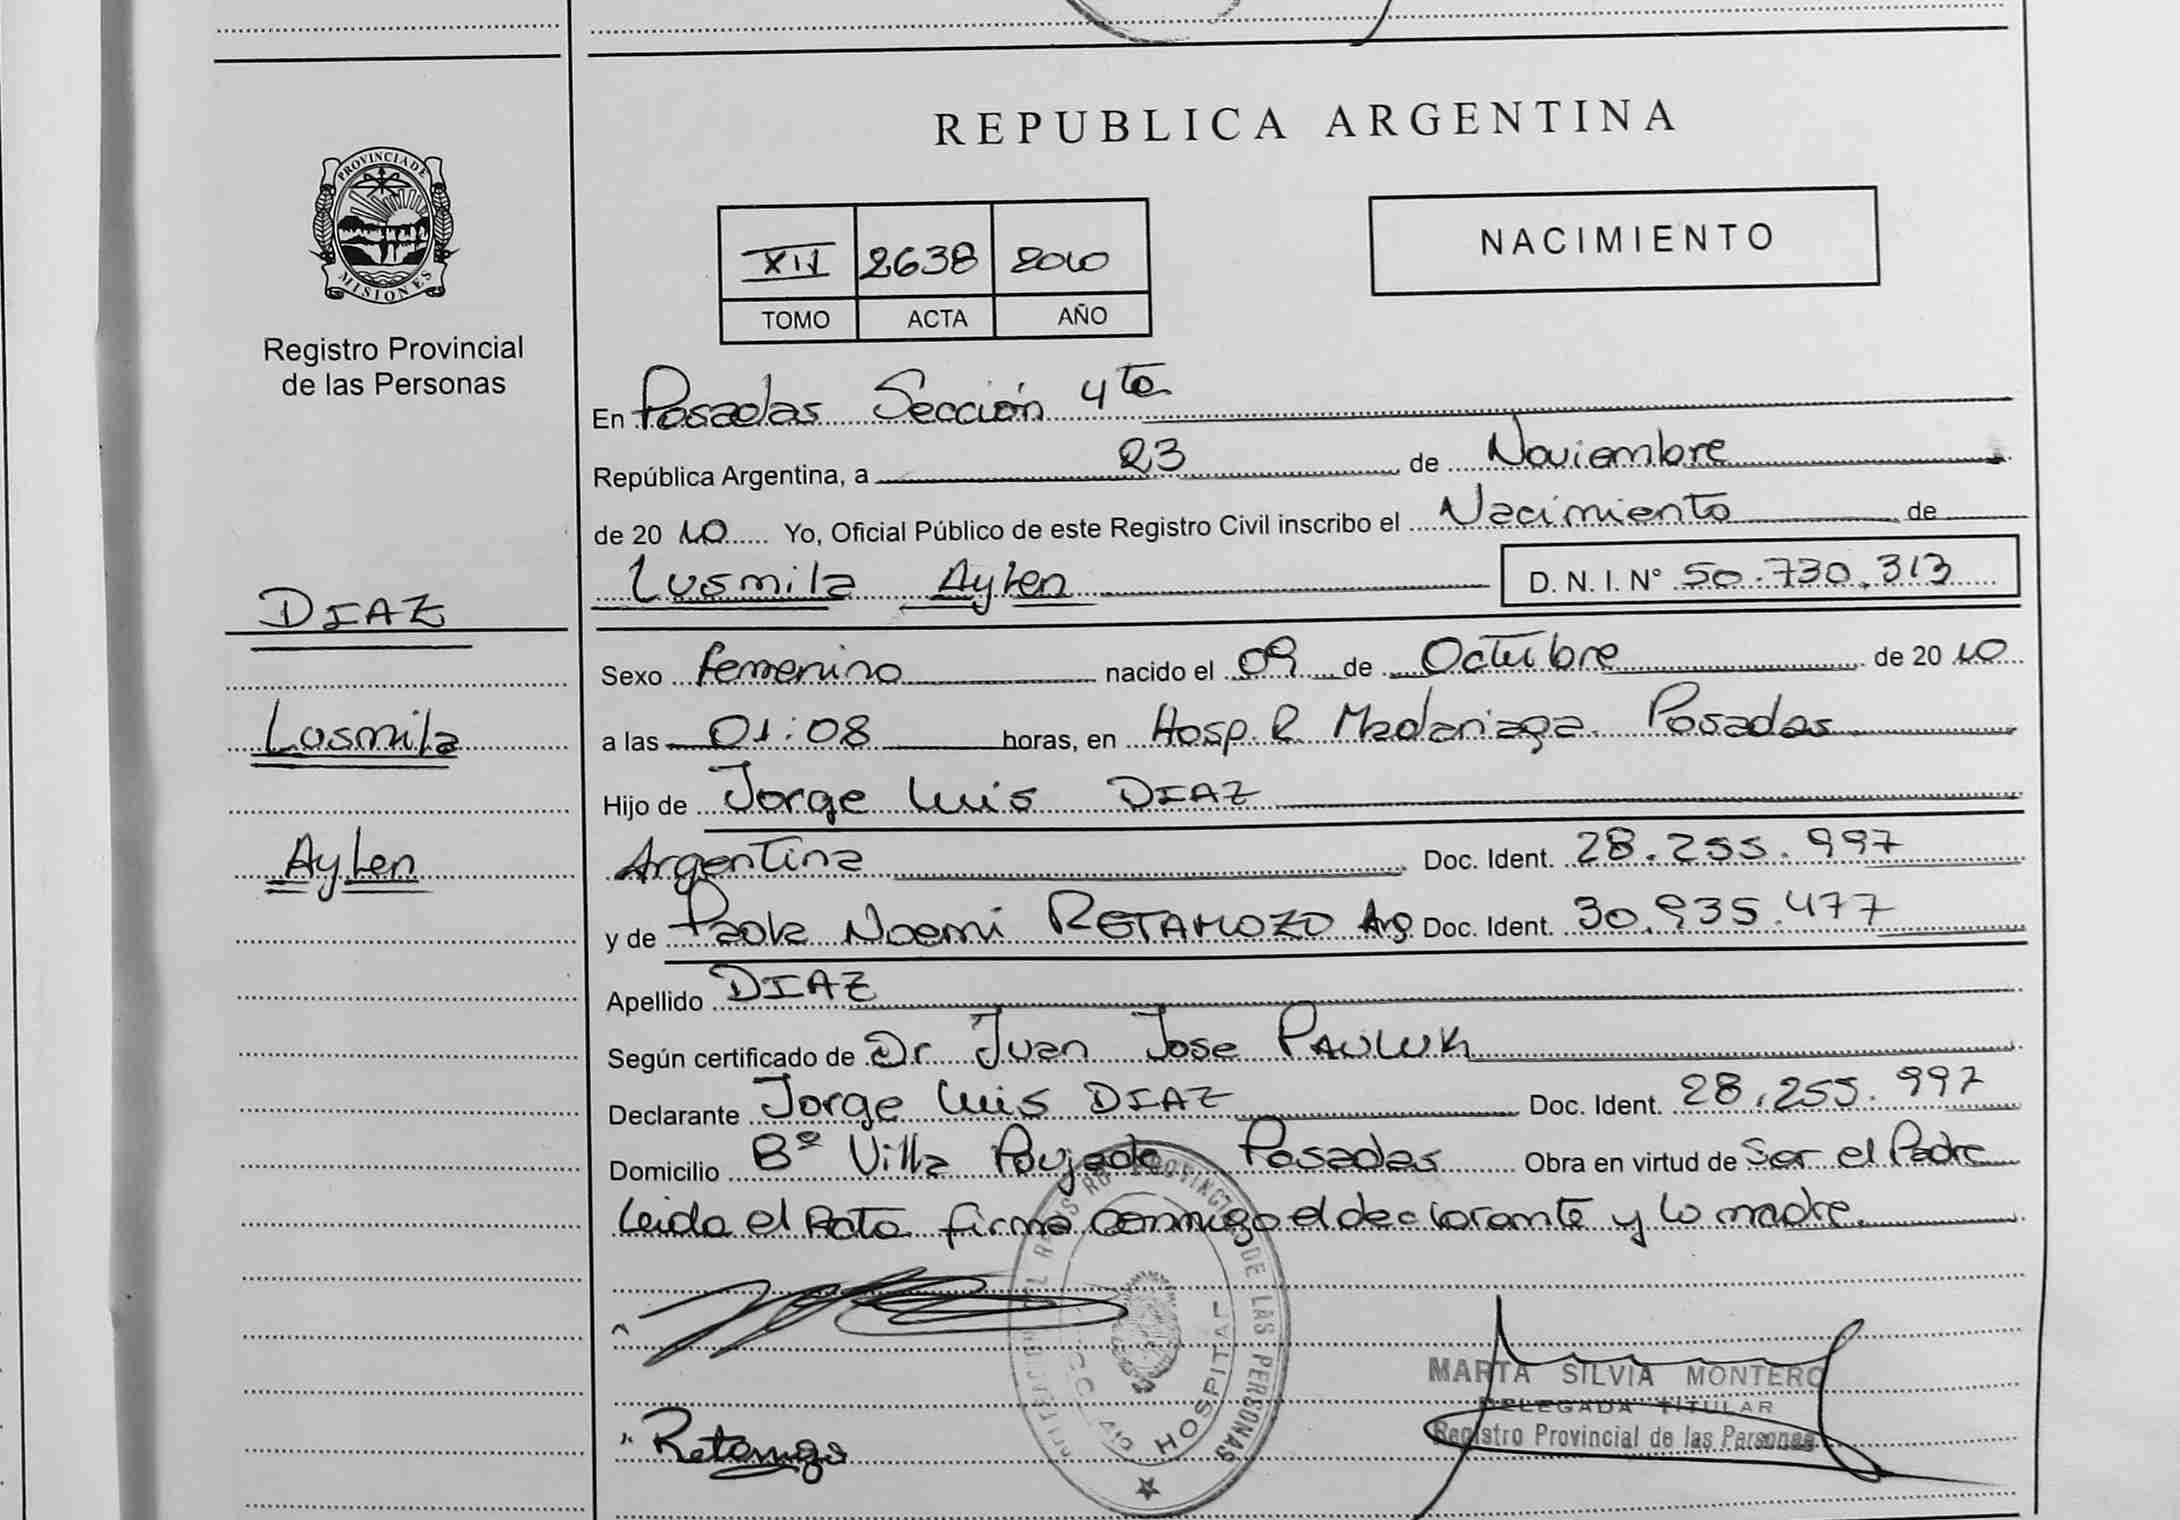 REPUBLICA ARGENTINA
PROVINCIA DE
MISIONES
Registro Provincial
de las Personas
2638 2010
TOMO ACTA AÑO
NACIMIENTO
En Posadas Sección 4ta
República Argentina, a 23 de Noviembre
de 20 10 Yo, Oficial Público de este Registro Civil inscribo el Nacimiento de
Lusmila Aylen D. N. I. N° 50.730.313
DIAZ
Lusmila
Aylen
Sexo femenino nacido el 09 de Octubre de 20 10
a las 01:08 horas, en Hosp. R. Madariaga. Posadas
Hijo de Jorge Luis DIAZ
Argentina Doc. Ident. 28.255.997
y de Paola Noemi RETAMOZO Arg Doc. Ident. 30.935.477
Apellido DIAZ
Según certificado de Dr Juan Jose PAULUK
Declarante Jorge Luis DIAZ Doc. Ident. 28.255.997
Domicilio Bº Villa Poujade Posadas Obra en virtud de Ser el Padre
Leida el Acta firma conmigo el declarante y la madre.
PROVINCIAL DE LAS PERSONAS
HOSPITAL
MARTA SILVIA MONTERO
DELEGADA TITULAR
Registro Provincial de las Personas